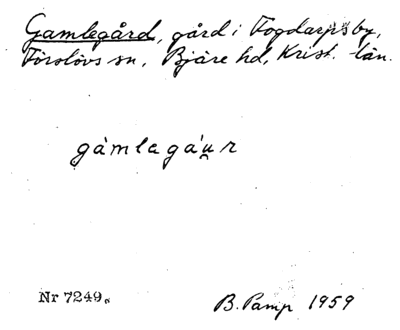 Gamlegård, gård i Fogdarps by,
Förslövs sn, Bjäre hd, Krist. län.
gámlagáu̯r
Nr 7249.
B. Pamp 1959